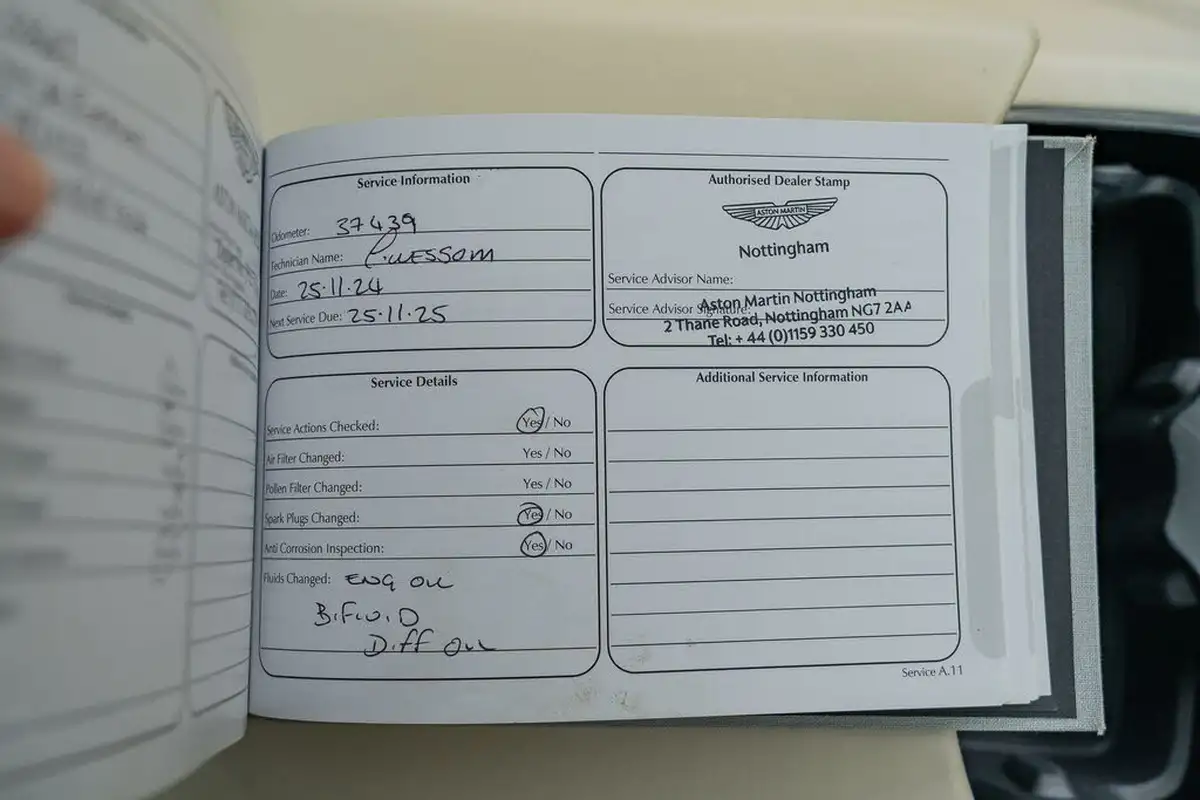 Service Information
Odometer: 37439
Technician Name: C. WESSOM
Date: 25.11.24
Next Service Due: 25.11.25
Authorised Dealer Stamp
ASTON MARTIN
Nottingham
Service Advisor Name:
Service Advisor Signature:
Aston Martin Nottingham
2 Thane Road, Nottingham NG7 2AA
Tel: + 44 (0)1159 330 450
Service Details
Service Actions Checked: Yes / No
Air Filter Changed: Yes / No
Pollen Filter Changed: Yes / No
Spark Plugs Changed: Yes / No
Anti Corrosion Inspection: Yes / No
Fluids Changed: ENG OIL
B.FLUID
Diff OIL
Additional Service Information
Service A.11